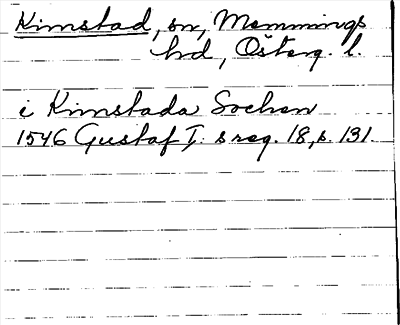 Kimstad, sn, Memmings
hrd, Österg. l.
i Kimstada Sochen
1546 Gustaf I:s reg. 18, s. 131.